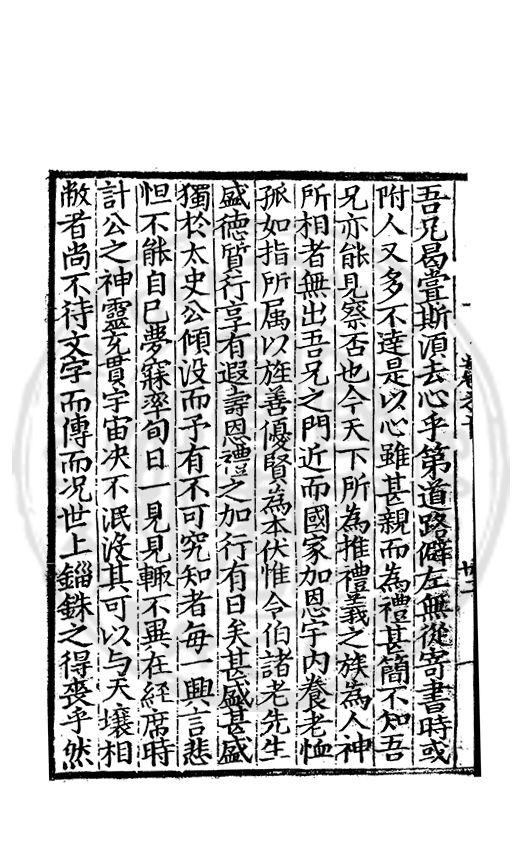 吾兄曷嘗斯湏去心乎第道路僻左無從寄書時或
附人又多不達是以心雖甚親而為禮甚簡不知吾
兄亦能見察否也今天下所為推禮義之族為人神
所相者無出吾兄之門近而國家加恩宇内養老恤
孤如指所属以旌善優賢為本伏惟令伯諸老先生
盛德質行享有遐壽恩禮之加行有日矣甚盛甚盛
獨於太史公傾没而予有不可究知者每一興言悲
怛不能自已夢寐率旬日一見見輙不異在経席時
計公之神靈充貫宇宙决不泯没其可以与天壤相
敝者尚不待文字而傳而况世上錙銖之得喪乎然